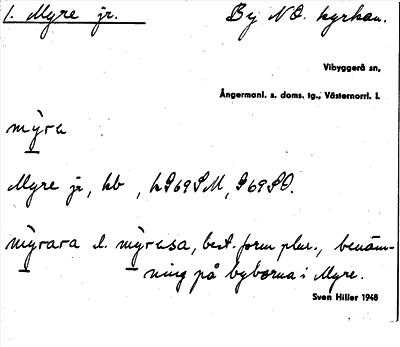 1. Myre jr. By NO. kyrkan.
Vibyggerå sn,
Ångermanl. s. doms. tg., Västernorrl. l.
mỳra
Myre jr, kb,
mỳrara l. mỳrasa, best. form plur., benäm-
ning på byborna i Myre.
Sven Hiller 1948